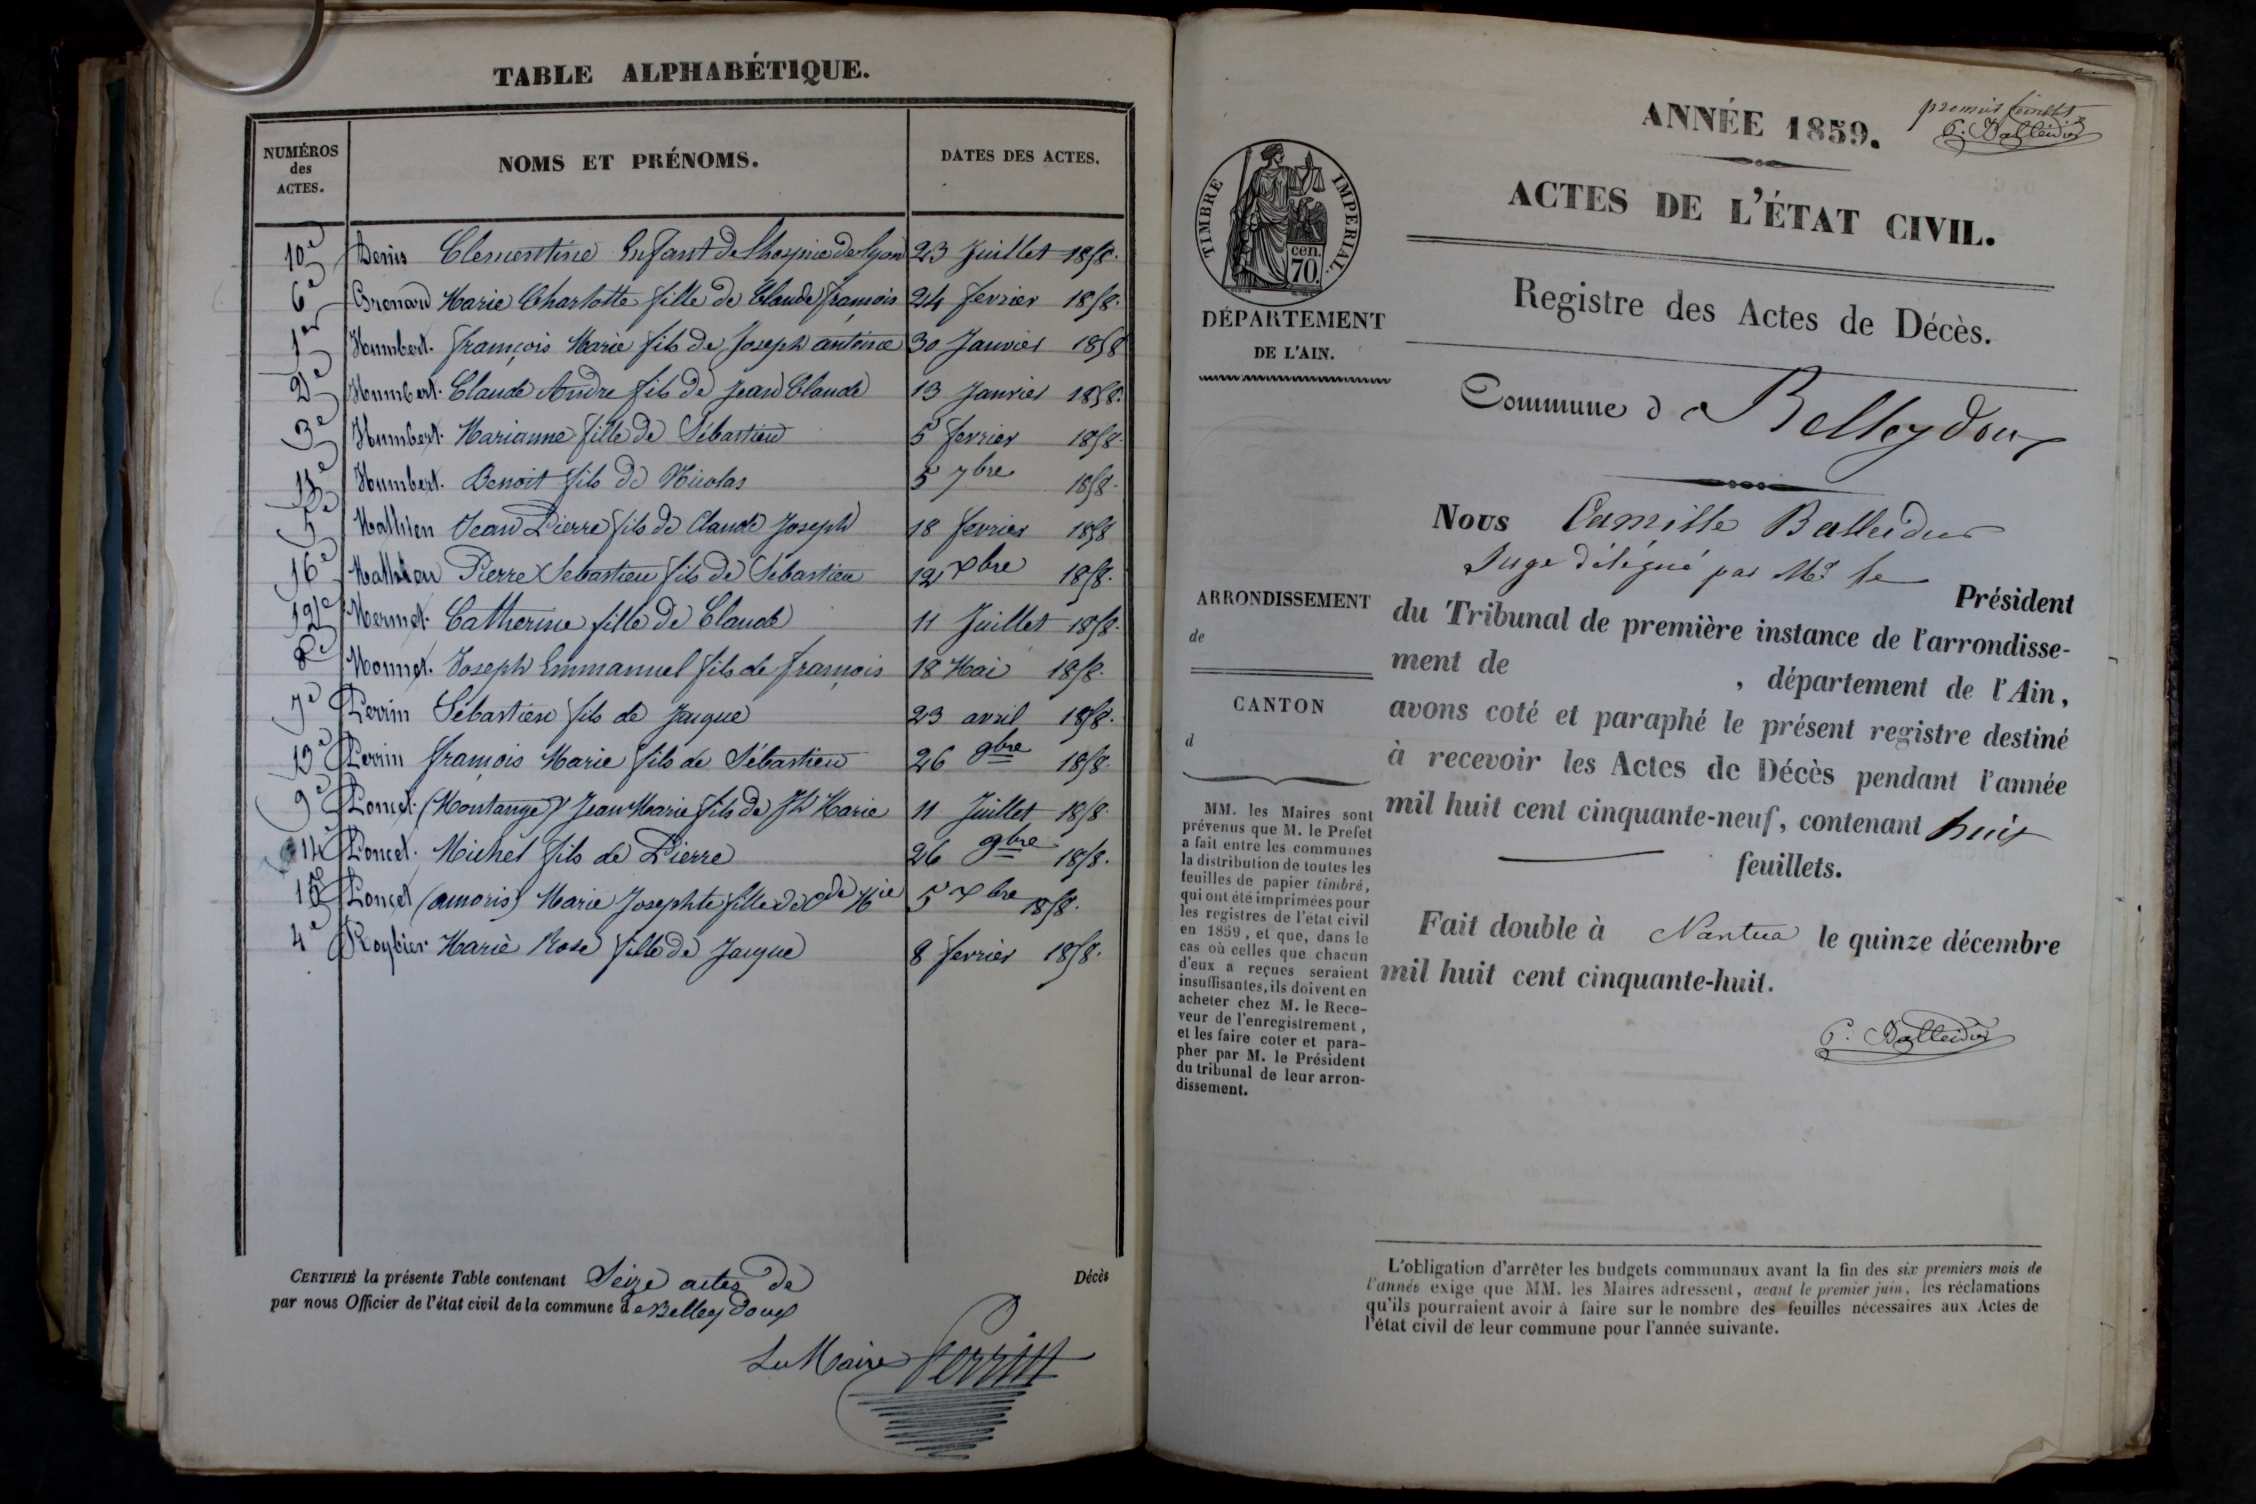 TABLE ALPHABÉTIQUE.
NUMÉROS
des
ACTES.
NOMS ET PRÉNOMS.
DATES DES ACTES.
10e Denis Clementine Enfant de lhospice de lyon 23 Juillet 1858.
6e Grenard Marie Charlotte fille de Claude françois 24 fevrier 1858.
1er Humbert. françois Marie fils de Joseph antoine 30 Janvier 1858
2e Humbert. Claude Andre fils de Jean Claude 13 Janvier 1858.
3e Humbert. Marianne fille de Sébastien 5 fevrier 1858.
11e Humbert. Benoit fils de Nicolas 5 7bre 1858.
5e Mathieu Jean Pierre fils de Claude Joseph 18 fevrier 1858
16e Mathieu Pierre Sebastien fils de Sebastien 12 xbre 1858.
12e Mermet. Catherine fille de Claude 11 Juillet 1858.
8e Monnet. Joseph Emmanuel fils de françois 18 Mai 1858.
7e Perrin Sébastien fils de Jacque 23 avril 1858.
13e Perrin françois Marie fils de Sébastien 26 9bre 1858.
9e Poncet. (Montange) Jean Marie fils de Jh Marie 11 Juillet 1858.
14e Poncet. Michel fils de Pierre 26 9bre 1858.
15e Poncet (amoris) Marie Josephte fille de Cde Mie 5 xbre 1858.
4e Roybier Marie Rose fille de Jacque 8 fevrier 1858.
CERTIFIÉ la présente Table contenant Seize actes de Décès
par nous Officier de l'état civil de la commune de Belleydoux
Le Maire Perrin
premier feuillet
C. Balleidier
ANNÉE 1859.
ACTES DE L'ÉTAT CIVIL.
TIMBRE IMPERIAL.
cen.
70.
DÉPARTEMENT
DE L'AIN.
Registre des Actes de Décès.
Commune de Belleydoux
Nous Camille Balleidier
Juge délégué par Mr le Président
du Tribunal de première instance de l'arrondisse-
ment de , département de l'Ain,
avons coté et paraphé le présent registre destiné
à recevoir les Actes de Décès pendant l'année
mil huit cent cinquante-neuf, contenant huit
feuillets.
Fait double à Nantua le quinze décembre
mil huit cent cinquante-huit.
C. Balleidier
ARRONDISSEMENT
de
CANTON
d
MM. les Maires sont
prévenus que M. le Préfet
a fait entre les communes
la distribution de toutes les
feuilles de papier timbré,
qui ont été imprimées pour
les registres de l'état civil
en 1859, et que, dans le
cas où celles que chacun
d'eux a reçues seraient
insuffisantes, ils doivent en
acheter chez M. le Rece-
veur de l'enregistrement,
et les faire coter et para-
pher par M. le Président
du tribunal de leur arron-
dissement.
L'obligation d'arrêter les budgets communaux avant la fin des six premiers mois de
l'année exige que MM. les Maires adressent, avant le premier juin, les réclamations
qu'ils pourraient avoir à faire sur le nombre des feuilles nécessaires aux Actes de
l'état civil de leur commune pour l'année suivante.